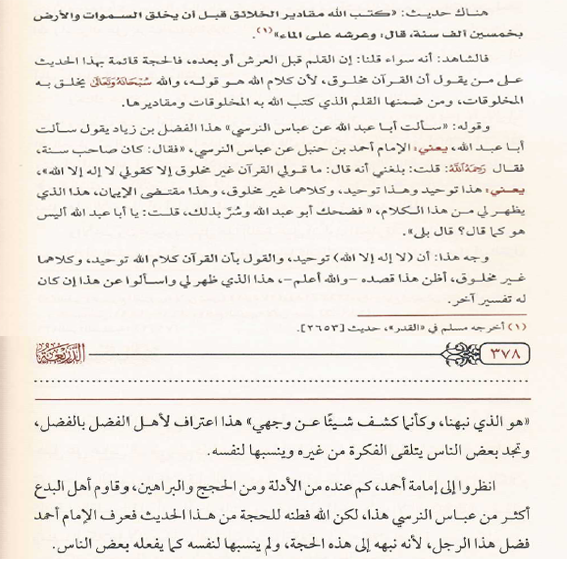 هناك حديث: «كتب الله مقادير الخلائق قبل أن يخلق السموات والأرض
بخمسين ألف سنة، قال: وعرشه على الماء»(١).
فالشاهد: أنه سواء قلنا: إن القلم قبل العرش أو بعده، فالحجة قائمة بهذا الحديث
على من يقول أن القرآن مخلوق، لأن كلام الله هو قوله، والله سُبْحَانَهُ وَتَعَالَى يخلق به
المخلوقات، ومن ضمنها القلم الذي كتب الله به المخلوقات ومقاديرها.
وقوله: «سألت أبا عبد الله عن عباس النرسي» هذا الفضل بن زياد يقول سألت
أبا عبد الله، يعني: الإمام أحمد بن حنبل عن عباس النرسي، «فقال: كان صاحب سنة،
فقال رَحِمَهُ اللَّهُ: قلت: بلغني أنه قال: ما قولي القرآن غير مخلوق إلا كقولي لا إله إلا الله»،
يعني: هذا توحيد وهذا توحيد، وكلاهما غير مخلوق، وهذا مقتضى الإيمان، هذا الذي
يظهر لي من هذا الكلام، «فضحك أبو عبد الله وسُرَّ بذلك، قلت: يا أبا عبد الله أليس
هو كما قال؟ قال بلى».
وجه هذا: أن (لا إله إلا الله) توحيد، والقول بأن القرآن كلام الله توحيد، وكلاهما
غير مخلوق، أظن هذا قصده -والله أعلم-، هذا الذي ظهر لي واسألوا عن هذا إن كان
له تفسير آخر.
(١) أخرجه مسلم في «القدر»، حديث [٢٦٥٣].
٣٧٨ الذريعة
«هو الذي نبهنا، وكأنما كشف شيئًا عن وجهي» هذا اعتراف لأهل الفضل بالفضل،
وتجد بعض الناس يتلقى الفكرة من غيره وينسبها لنفسه.
انظروا إلى إمامة أحمد، كم عنده من الأدلة ومن الحجج والبراهين، وقاوم أهل البدع
أكثر من عباس النرسي هذا، لكن الله فطنه للحجة من هذا الحديث فعرف الإمام أحمد
فضل هذا الرجل، لأنه نبهه إلى هذه الحجة، ولم ينسبها لنفسه كما يفعله بعض الناس.